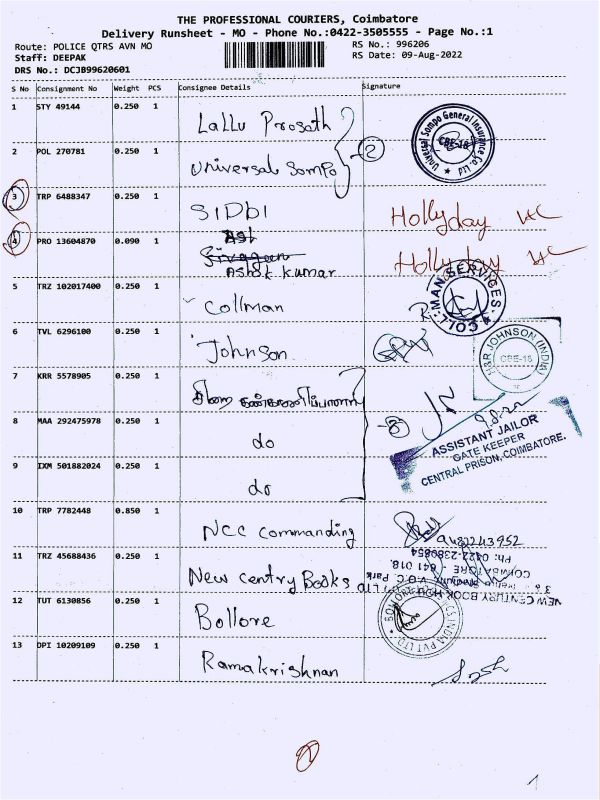 THE PROFESSIONAL COURIERS, Coimbatore
Delivery Runsheet - MO - Phone No.:0422-3505555 - Page No.:1
Route: POLICE QTRS AVN MO
RS No.: 996206
Staff: DEEPAK
RS Date: 09-Aug-2022
DRS No.: DCJB99620601
S No Consignment No Weight PCS Consignee Details Signature
1 STY 49144 0.250 1 Lallu Prosath
2 POL 270781 0.250 1 Universal Sompo 2
Universal Sompo General Insurance Co. Ltd. CBE-18
3 TRP 6488347 0.250 1 SIDBI Hollyday
4 PRO 13604870 0.090 1 Ashok kumar Hollyday
5 TRZ 102017400 0.250 1 Collman
COLL-MAN SERVICES.
6 TVL 6296100 0.250 1 Johnson
H&R JOHNSON (INDIA) CBE-18
7 KRR 5578905 0.250 1 சிறை கண்காணிப்பாளர்
8 MAA 292475978 0.250 1 do 3
9 IXM 501882024 0.250 1 do
ASSISTANT JAILOR
GATE KEEPER
CENTRAL PRISON, COIMBATORE.
10 TRP 7782448 0.850 1 NCC commanding
11 TRZ 45688436 0.250 1 New centry Books
Ph: 0422-2380854
COIMBATORE - 641 018.
V.O.C. Park
NEW CENTURY BOOK HOUSE (P) LTD
12 TUT 6130856 0.250 1 Bollore
13 DPI 10209109 0.250 1 Ramakrishnan
1